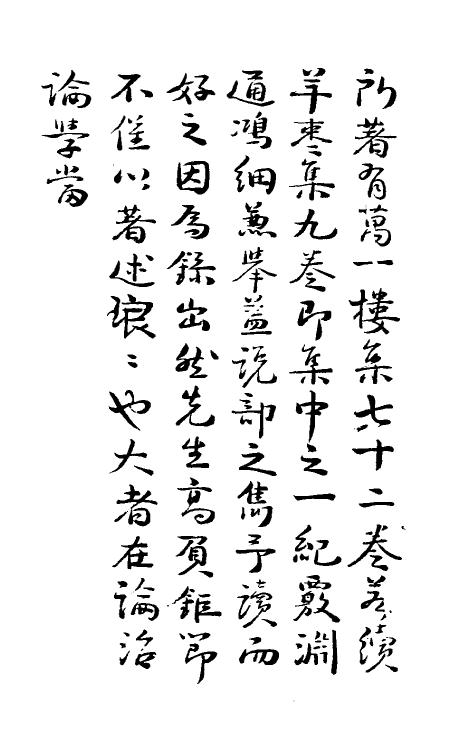 所著有萬一樓集七十二卷若續
羊棗集九卷即集中之一紀覈淵
通鴻細兼舉蓋說部之雋予讀而
好之因為錄出然先生高頁鉅節
不僅以著述琅〻也大者在論治
論學當